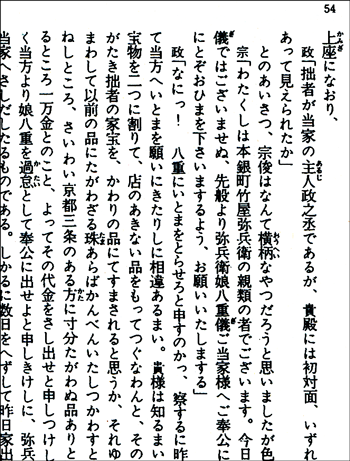 54
上座になおり、
政「拙者が当家の主人政之丞であるが、貴殿には初対面、いずれ
あって見えられたか」
とのあいさつ、宗俊はなんて横柄なやつだろうと思いましたが色
宗「わたくしは本銀町竹屋弥兵衛の親類の者でございます。今日
儀ではございませぬ、先般より弥兵衛娘八重儀ご当家様へご奉公に
にとぞおひまを下さいますよう、お願いいたしまする」
政「なにっ！　八重にいとまをとらせろと申すのかっ、察するに昨
て当方へいとまを願いにきたりしに相違あるまい。貴様は知るまい
宝物を二つに割りて、店のあきない品をもってつぐなわんと、その
がたき拙者の家宝を、かわりの品にてすまされると思うか、それゆ
まわして以前の品にたがわざる珠あらばかんべんいたしつかわすと
るしところ、さいわい京都三条のある方に寸分たがわぬ品ありと
るところ一万金とのこと、よってその代金をさし出せと申しつけし
く当方より娘八重を過怠として奉公に出せよと申しきけしに、弥兵
当家へさしだしたるものである。しかるに数日をへずして昨日家出